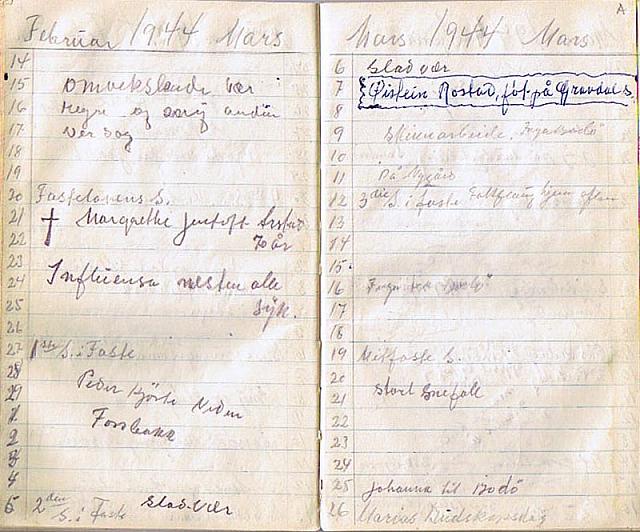 Februar 1944 Mars
14
15 Omvekslende vær
16 Regn og
17 ver dag
18
19
20 Fastelavens S.
21 † Margrethe
22 70 år
23
24 Influensa nesten alle
25 syk.
26
27 1ste S. i Faste
28 Peder
29
1
2
3
4
5 2den S. i Faste Slad vær
Mars 1944 Mars A
6 Slad vær
7 Øistein Rostad, föt. på Gravdal S.
8
9 Skinnarbeide,
10
11 På
12 3die S. i faste
13
14
15
16
17
18
19 Mitfaste S.
20
21 Stort Snefall
22
23
24
25 Johanna til Bodö
26 Marias Budskapsdag